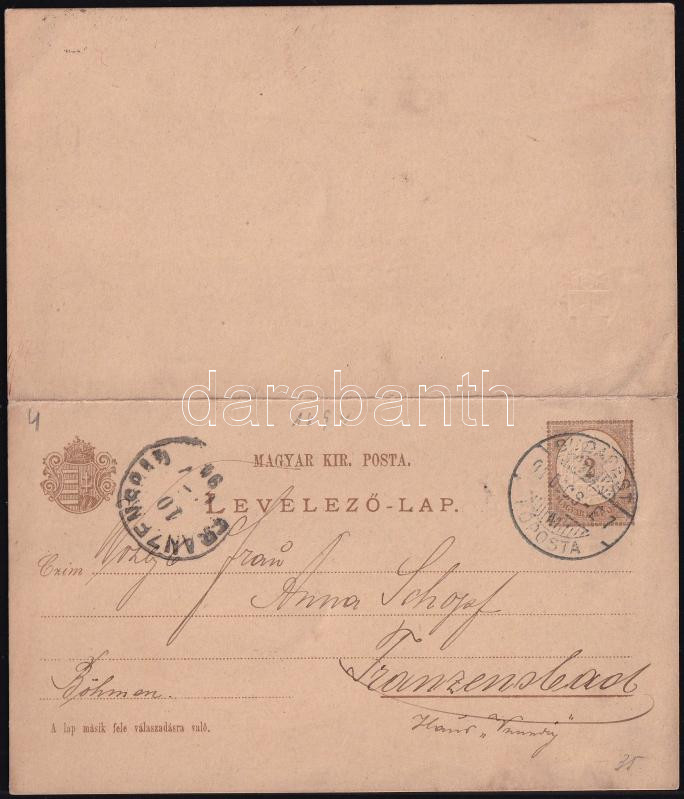 darabanth
4
MAGYAR KIR. POSTA.
LEVELEZŐ-LAP.
FRANZENSBAD
10
BUDAPEST
FŐPOSTA
2
Czim Frau
Anna Schopf
Franzensbad
Böhmen.
Haus
A lap másik fele válaszadásra való.
35